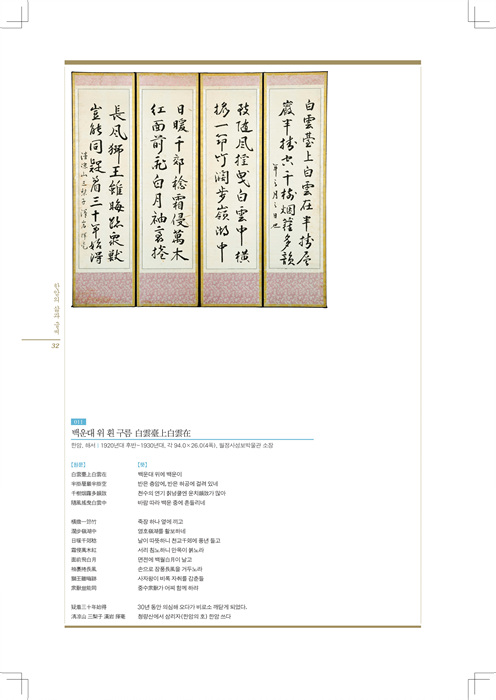 白雲臺上白雲在半掛層
巖半掛空千樹烟籠多韻
致隨風搖曳白雲中橫
擔一筇竹濶步嶺湖中
日暖千郊稔霜侵萬木
紅面前飛白月袖裏捲
長風獅王雖晦跡衆獸
豈能同疑着三十年始得
한암의 삶과 글씨
32
011
백운대 위 흰 구름 白雲臺上白雲在
한암, 해서 | 1920년대 후반~1930년대, 각 94.0×26.0(4폭), 월정사성보박물관 소장
[原文]
白雲臺上白雲在
半掛層巖半掛空
千樹烟籠多韻致
隨風搖曳白雲中
橫擔一筇竹
濶步嶺湖中
日暖千郊稔
霜侵萬木紅
面前飛白月
袖裏捲長風
獅王雖晦跡
衆獸豈能同
疑着三十年始得
淸凉山 三梨子 漢岩 揮毫
[譯]
백운대 위에 백운이
반은 층암에, 반은 허공에 걸려 있네
천수의 연기 밝남쿨엔 운치韻致가 많아
바람 따라 백운 중에 흔들리네
죽장 하나 옆에 끼고
영호嶺湖를 활보하네
날이 따뜻하니 천교千郊에 풍년 들고
서리 침노하니 만목이 붉노라
면전에 백월白月이 날고
손으로 장풍長風을 거두노라
사자왕이 비록 자취를 감춘들
중수衆獸가 어찌 함께 하랴
30년 동안 의심해 오다가 비로소 깨닫게 되었다.
청량산에서 삼리자(한암의 호) 한암 쓰다